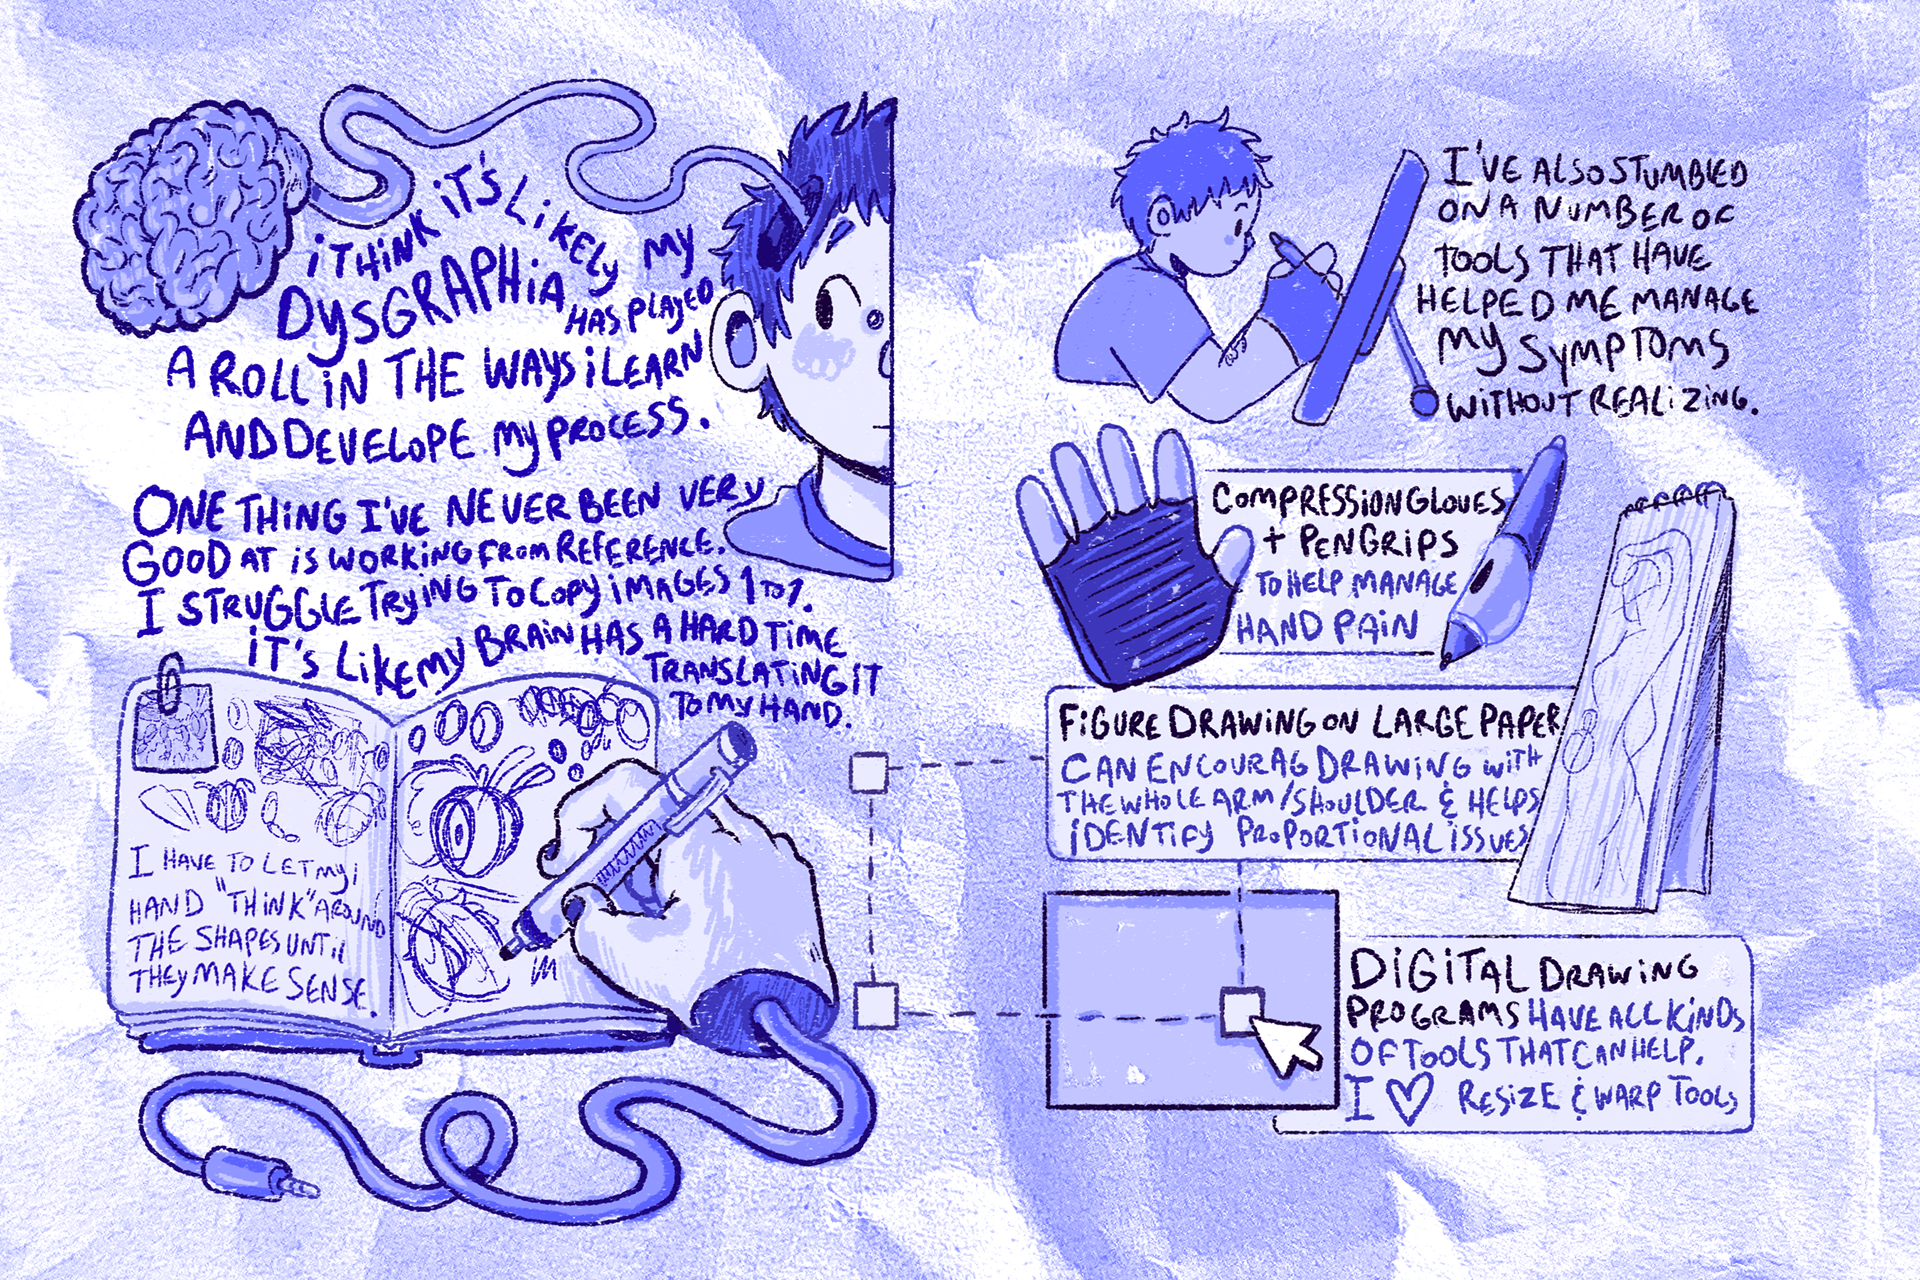 iTHiNK iT'S LiKELy My
DySGRAPHiA HAS PLAyED
A ROLL iN THE WAyS i LEARN
AND DEVELOPE My PROCESS.
ONE THiNG I'VE NEVER BEEN VERy
GOOD AT iS WORKiNG FROM REFERENCE.
I STRUGGLE TRyiNG TO COPy iMAGES 1 TO 1.
iT'S LiKE My BRAiN HAS A HARD TiME
TRANSLATiNG iT
TO My HAND.
I HAVE TO LET My
HAND "THiNK" AROUND
THE SHAPES UNTiL
THEy MAKE SENSE.
I'VE ALSO STUMBLED
ON A NUMBER OF
TOOLS THAT HAVE
HELPED ME MANAGE
My SyMPTOMS
WiTHOUT REALiZiNG.
COMPRESSiON GLOVES
+ PEN GRiPS
TO HELP MANAGE
HAND PAiN
FiGURE DRAWiNG ON LARGE PAPER
CAN ENCOURAG DRAWiNG WiTH
THE WHOLE ARM/SHOULDER & HELPS
iDENTiFy PROPORTiONAL iSSUES
DiGiTAL DRAWiNG
PROGRAMS HAVE ALL KiNDS
OF TOOLS THAT CAN HELP.
I ♡ RESiZE & WARP TOOLS